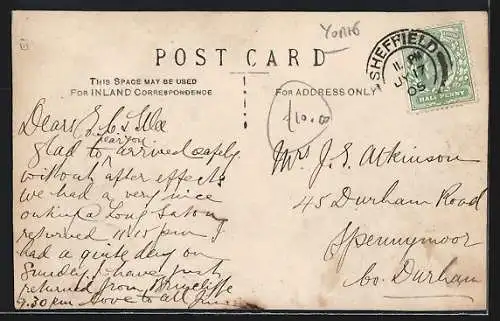 Yorks
POST CARD
THIS SPACE MAY BE USED
FOR INLAND CORRESPONDENCE
FOR ADDRESS ONLY
SHEFFIELD
11 PM
JY 17
05
HALF PENNY
£10.00
Dears
glad to hear you arrived safely
without after effects
we had a very nice
outing
returned 11.15 pm I
had a quite day on
Sunday, I have just
returned from Brincliffe
9.30 pm Love to all Jim
Mrs J. E. Atkinson
45 Durham Road
Spennymoor
Co. Durham